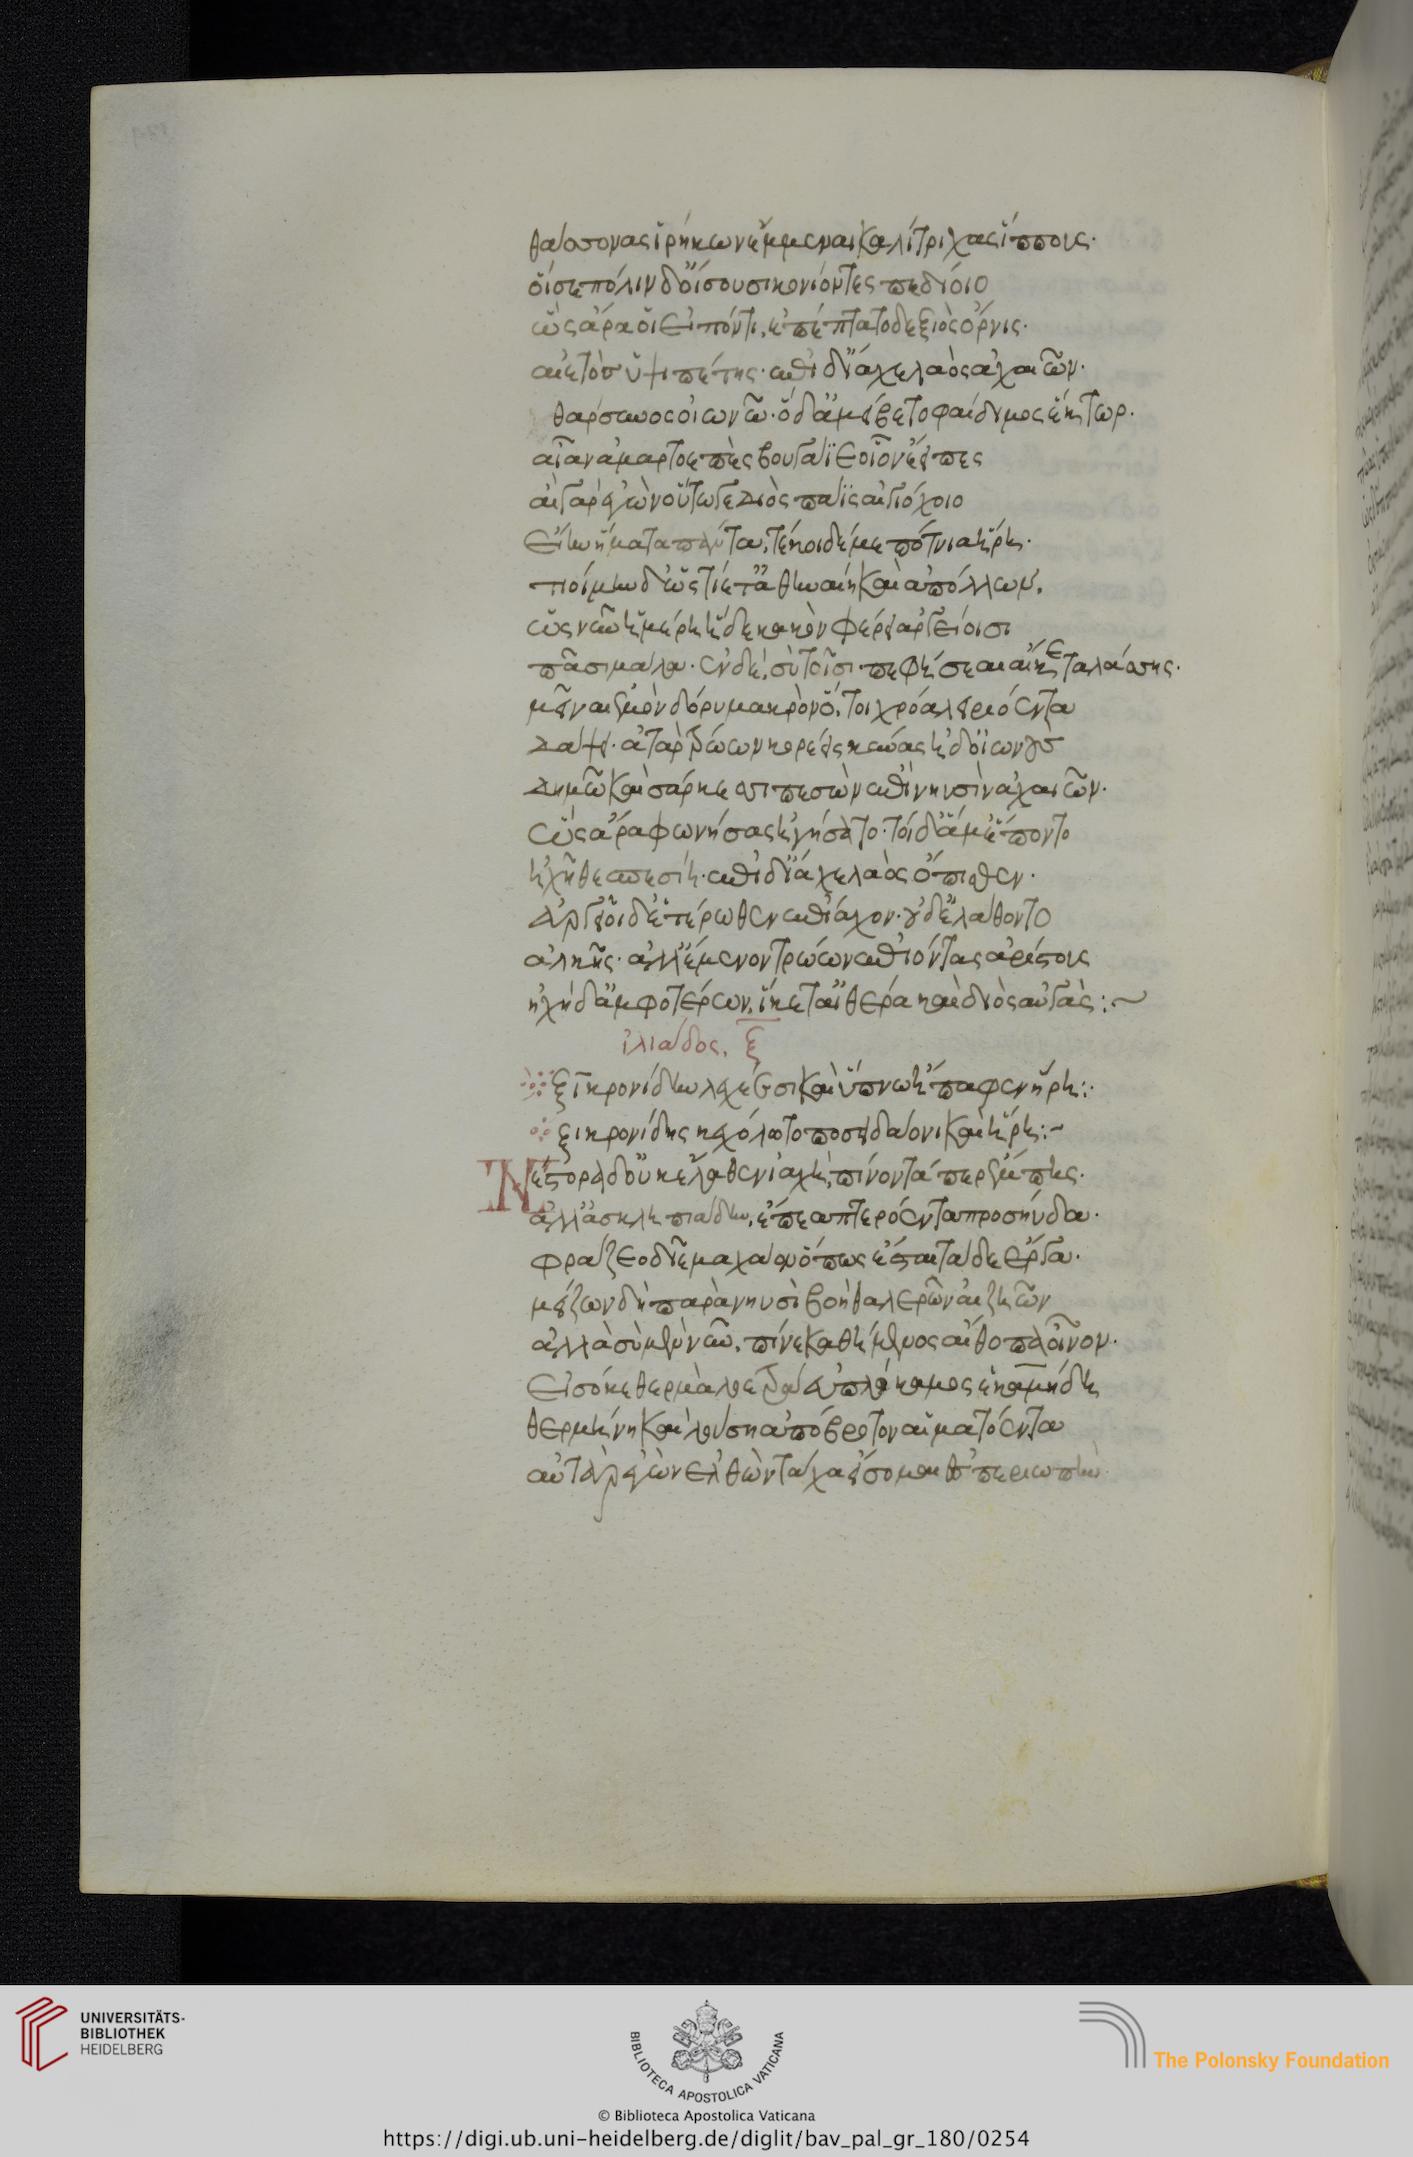 θάσσονας ἰρήκων ἔμμεναι καλίτριχας ἵππους·
οἵ σε πόλιν δ' οἴσουσι κονίοντες πεδίοιο
ὣς ἄρα οἱ εἰπόντι, ἐπέπτατο δεξιὸς ὄρνις·
αἰετὸσ ὑψιπέτης· ἐπὶ δ' ἴαχε λαὸς ἀχαιῶν·
θάρσυνος οἰωνῶ· ὁ δ' ἀμείβετο φαίδιμος ἕκτωρ·
αἶαν ἁμαρτοεπὲς βουγάϊε οἷον ἔειπες
αἲ γὰρ ἐγὼν οὕτω γε διὸς πάϊς αἰγιόχοιο
εἴην ἤματα πάντα, τέκοι δέ με πότνια ἥρη·
τιοίμην δ' ὡς τίετ' ἀθηναίη καὶ ἀπόλλων,
ὡς νῦν ἡμέρη ἥδε κακὸν φέρει ἀργείοισι
πᾶσι μάλα· ἐν δὲ, σὺ τοῖσι πεφήσεαι αἴ κε ταλάσσης·
μεῖναι ἐμὸν δόρυ μακρὸν ὅ, τοι χρόα λειριόεντα
δάψει· ἀτὰρ τρώων κορέεις κύνας ἠδ' οἰωνοὺς
δημῶ καὶ σάρκεσσι πεσὼν ἐπὶ νηυσὶν ἀχαιῶν·
ὣς ἄρα φωνήσας ἡγήσατο· τοὶ δ' ἅμ' ἕποντο
ἠχῆ θεσπεσίη· ἐπὶ δ' ἴαχε λαὸς ὄπισθεν·
ἀργεῖοι δ' ἑτέρωθεν ἐπίαχον· οὐδ' ἐλάθοντο
ἀλκῆς· ἀλλ' ἔμενον τρώων ἐπιόντας ἀρίστους
ἠχὴ δ' ἀμφοτέρων, ἵκετ' αἰθέρα καὶ διὸς αὐγάς:~
ἰλιάδος, ξ
ξῖ κρονίδην λεχέεσσι καὶ ὕπνω ἤπαφεν ἥρη:
ξῖ κρονίδης κεχόλωτο ποσειδάονι καὶ ἥρη:~
Νέστορα δ' οὐκ ἔλαθεν ἰαχὴ, πίνοντά περ ἔμπης·
ἀλλ' ἀσκληπιάδην, ἔπεα πτερόεντα προσηύδα·
φράζεο δῖε μαχάον ὅπως ἔσται τάδε ἔργα·
μείζων δὴ παρὰ νηυσὶ βοὴ θαλερῶν αἰζηῶν
ἀλλὰ σὺ μὲν νῦν, πῖνε καθήμενος αἴθοπα οἶνον·
εἰσόκε θερμὰ λοετρὰ ἐυπλόκαμος ἑκαμήδη
θερμήνη καὶ λούση ἀπὸ βρότον αἱματόεντα
αὐτὰρ ἐγὼν ἐλθὼν τάχα εἴσομαι ἐς περιωπήν
UNIVERSITÄTS-
BIBLIOTHEK
HEIDELBERG
BIBLIOTECA APOSTOLICA VATICANA
The Polonsky Foundation
© Biblioteca Apostolica Vaticana
https://digi.ub.uni-heidelberg.de/diglit/bav_pal_gr_180/0254